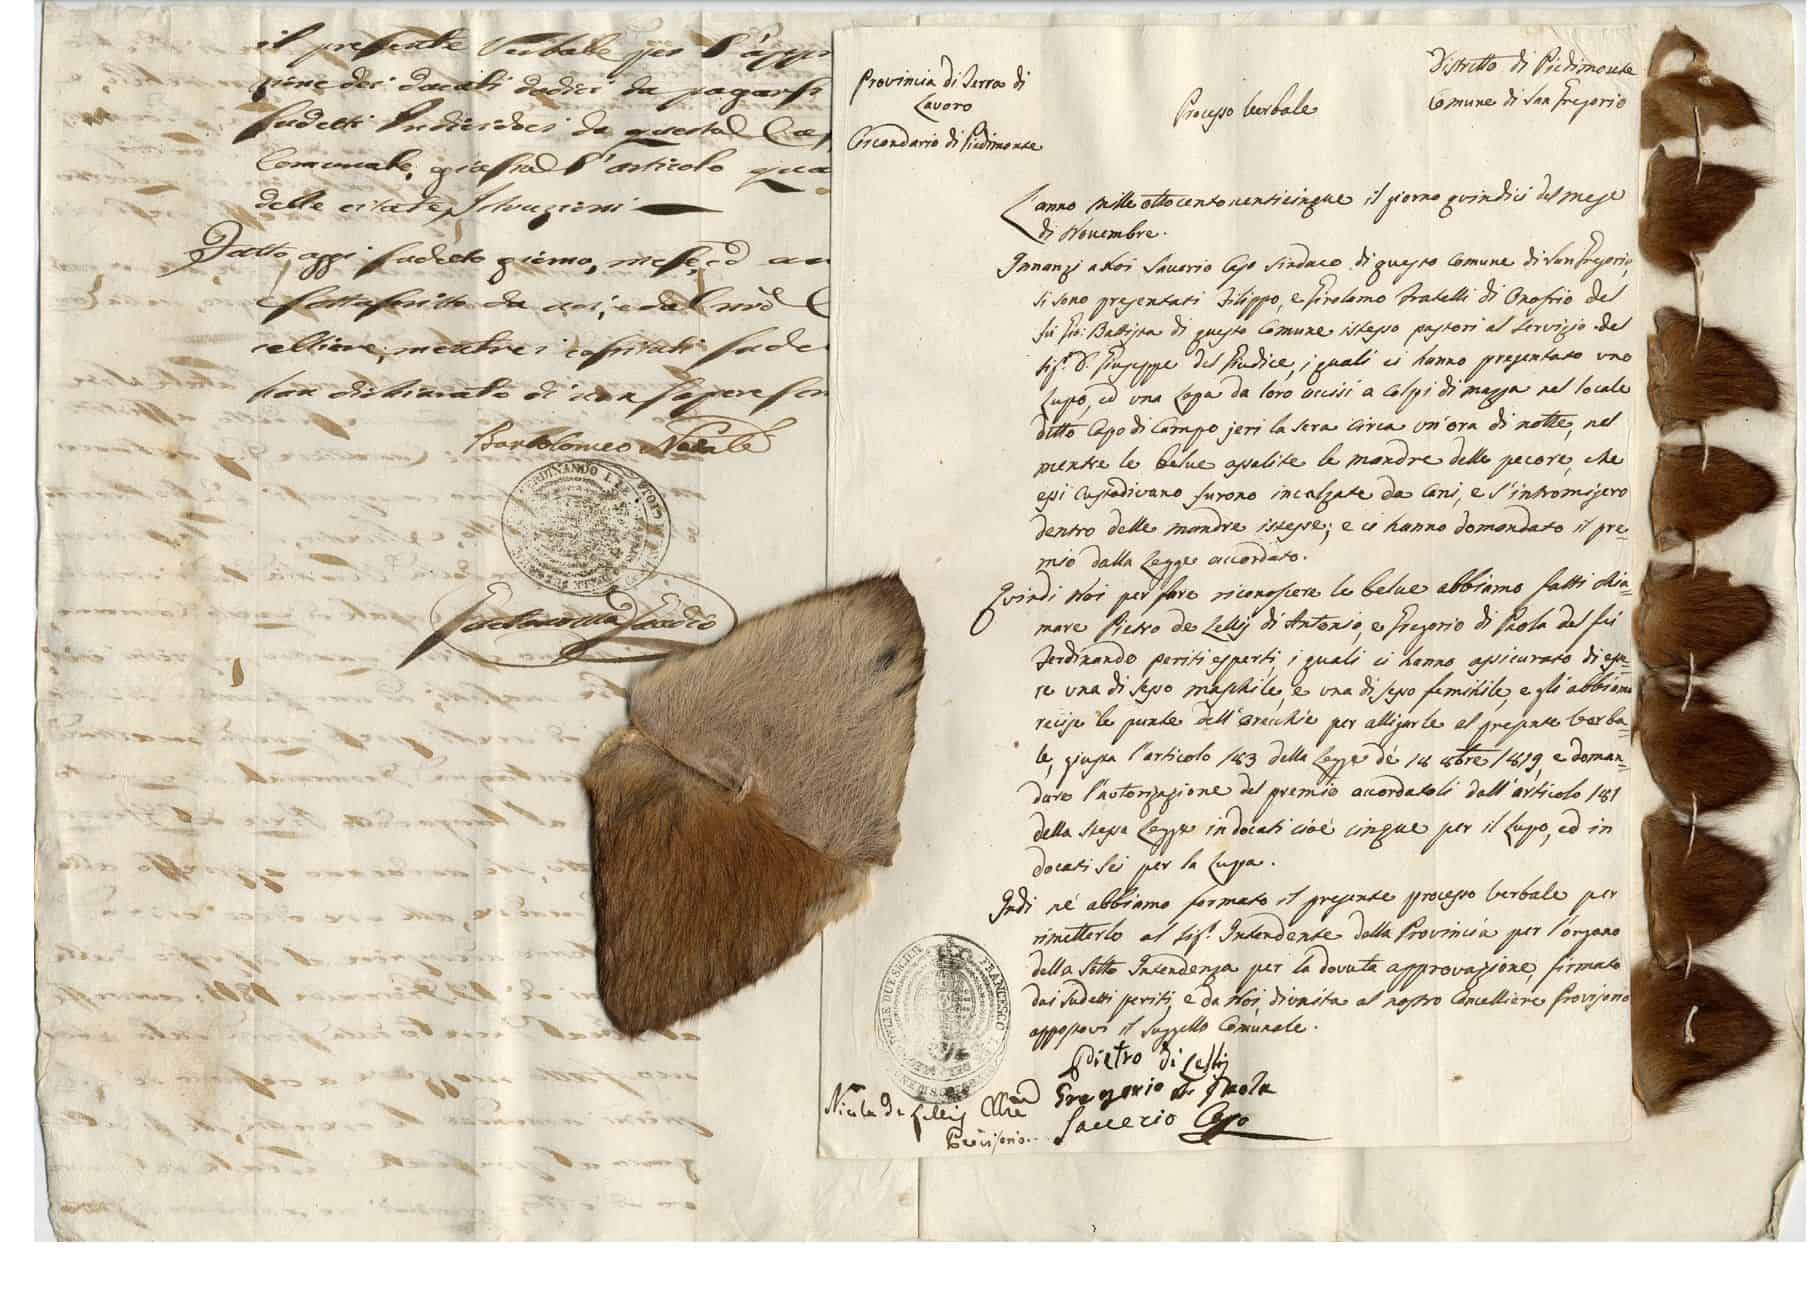 il presente Verbale per l'appr
zione dei docati dodici da pagarsi
sudetti Individui da questa Cas
Comunale, giusta l'articolo qua
delle citate Istruzioni
Fatto oggi sudetto giorno, mese, ed an
sottoscritto da noi, e dal nro C
celliere, mentre i sudde
han dichiarato di non sapere scri
Bartolomeo Natale
FERDINANDO I. RE
Provincia di Terra di
Lavoro
Circondario di Piedimonte
Processo Verbale
Distretto di Piedimonte
Comune di San Gregorio
L'anno mille ottocentoventicinque il giorno quindici del mese
di Novembre.
Innanzi a Noi Saverio Caso Sindaco di questo Comune di San Gregorio,
si sono presentati Filippo, e Girolamo fratelli di Onofrio del
fù Gio: Battista di questo Comune istesso pastori al servizio del
Sig.r D. Giuseppe del Giudice, i quali ci hanno presentato uno
Lupo, ed una Lupa da loro uccisi a colpi di mazza nel locale
detto Capo di Campo jeri la sera circa un'ora di notte, nel
mentre le belue assalite le mandre delle pecore, che
essi custodivano furono incalzate da cani, e s'intromisero
dentro delle mandre istesse; e ci hanno domandato il pre-
mio dalla Legge accordato.
Quindi Noi per fare riconoscere le belue abbiamo fatti chia-
mare Pietro de Lellij di Antonio, e Gregorio di Paola del fù
Ferdinando periti esperti, i quali ci hanno assicurato di esse-
re una di sesso maschile, e una di sesso feminile, e gli abbiamo
recise le punte dell'orecchie per alligarle al presente verba-
le, giusta l'articolo 183 della Legge de' 18 8bre 1819, e doman-
dare l'autorizazione del premio accordatoli dall'articolo 181
della stessa Legge in docati cioè cinque per il Lupo, ed in
docati sei per la Lupa.
Indi né abbiamo formato il presente processo verbale per
rimetterlo al Sig.r Intendente della Provincia per l'organo
della Sotto Intendenza per la dovuta approvazione, firmato
dai sudetti periti, e da Noi, divnita al nostro Cancelliere Provisorio
appostovi il suggello Comunale.
Pietro di Lellij
Gregorio di Paola
Saverio Caso
Nicola de Lellij Cllre
Provisorio
FRANCESCO
DELLE DUE SICILIE